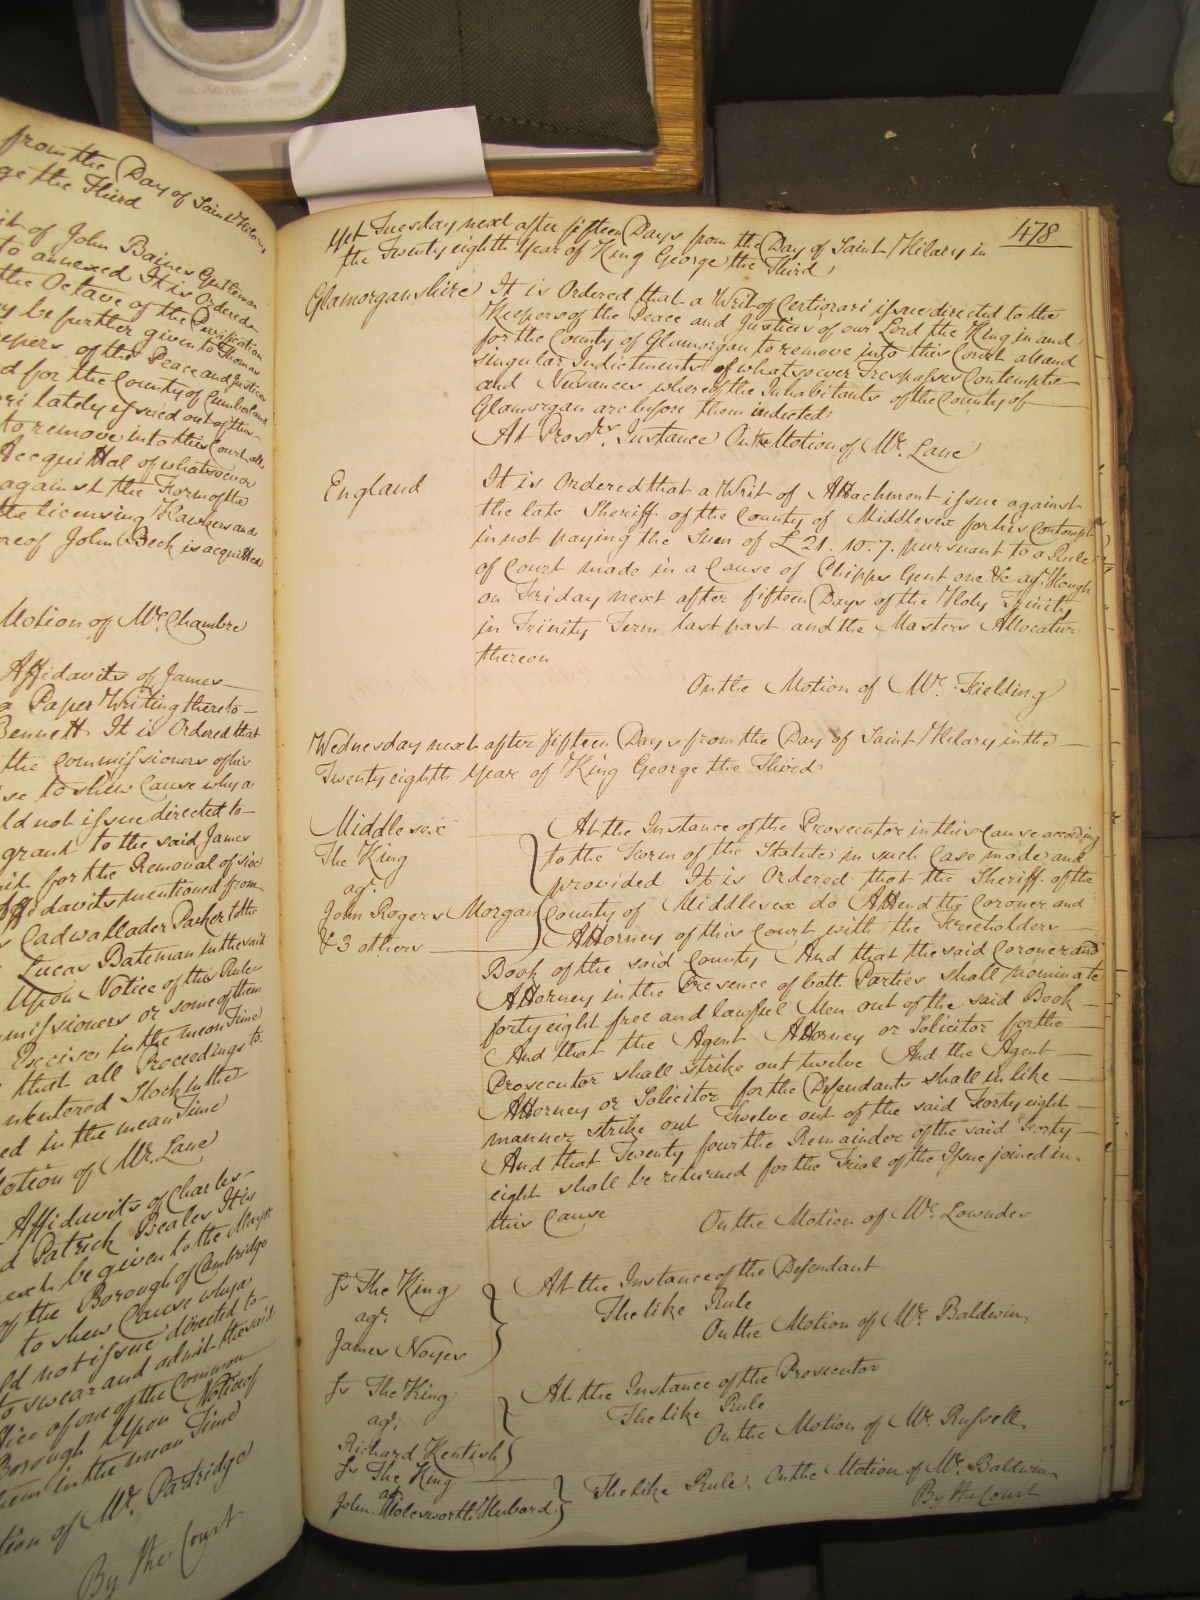 from the Day of Saint Hilary
ge the Third
it of John Baines Gentleman
to annexed It is Ordered
the Octave of the Purification
y be further given to Thomas
epers of the Peace and Justices
d for the County of Cumberland
ri lately issued out of this
to remove into this Court all
Acquittal of whatsoever
against the Form of the
the licensing Hawkers and
reof John Beck is acquitted
Motion of Mr. Chambre
Affidavits of James
a Paper Writing thereto
Bennett It is Ordered that
the Commissioners of his
se to shew Cause why a
ld not issue directed to
grant to the said James
it for the Removal of six
Affidavits mentioned from
s Cadwallader Parker to the
Lucas Bateman in the said
Upon Notice of this Rule
missioners or some of them
Excise in the mean Time
that all Proceedings to
Stock in the
ed in the mean Time
otion of Mr. Lane
Affidavits of Charles
d Patrick Beales It is
each be given to the Mayor
of the Borough of Cambridge
to shew Cause why a
ld not issue directed to
to swear and admit the said
ffice of one of the Common
Borough Upon Notice of
them in the mean Time
tion of Mr. Partridge
By the Court
478
Yet Tuesday next after fifteen Days from the Day of Saint Hilary in
the Twenty eighth Year of King George the Third
Glamorganshire It is Ordered that a Writ of Certiorari issue directed to the
Keepers of the Peace and Justices of our Lord the King in and
for the County of Glamorgan to remove into this Court all and
singular Indictments of whatsoever Trespasses Contempts
and Nusances whereof the Inhabitants of the County of
Glamorgan are before them indicted
At Prosrs. Instance On the Motion of Mr. Lane
England It is Ordered that a Writ of Attachment issue against
the late Sheriff of the County of Middlesex for his Contempt
in not paying the Sum of £21. 10. 7. pursuant to a Rule
of Court made in a Cause of Phipps Gent one &c agt. Hough
on Friday next after fifteen Days of the Holy Trinity
in Trinity Term last past and the Masters Allocatur
thereon
On the Motion of Mr. Fielding
Wednesday next after fifteen Days from the Day of Saint Hilary in the
Twenty eighth Year of King George the Third
Middlesex
The King
agt.
John Rogers Morgan
& 3 others
At the Instance of the Prosecutor in this cause according
to the Form of the Statute in such Case made and
provided It is Ordered that the Sheriff of the
County of Middlesex do Attend the Coroner and
Attorney of this Court with the Freeholders
Book of the said County And that the said Coroner and
Attorney in the Presence of both Parties shall nominate
forty eight free and lawful Men out of the said Book
And that the Agent Attorney or Solicitor for the
Prosecutor shall strike out twelve And the Agent
Attorney or Solicitor for the Defendants shall in like
manner strike out Twelve out of the said Forty eight
And that Twenty four the Remainder of the said Forty
eight shall be returned for the Trial of the Issue joined in
this Cause
On the Motion of Mr. Lowndes
Js The King
agt.
James Noyes
At the Instance of the Defendant
The like Rule
On the Motion of Mr. Baldwin
Js The King
agt.
Richard Kentish
At the Instance of the Prosecutor
The like Rule
On the Motion of Mr. Russell
Js The King
agt.
John Molesworth Hubard
The like Rule. On the Motion of Mr. Baldwin
By the Court